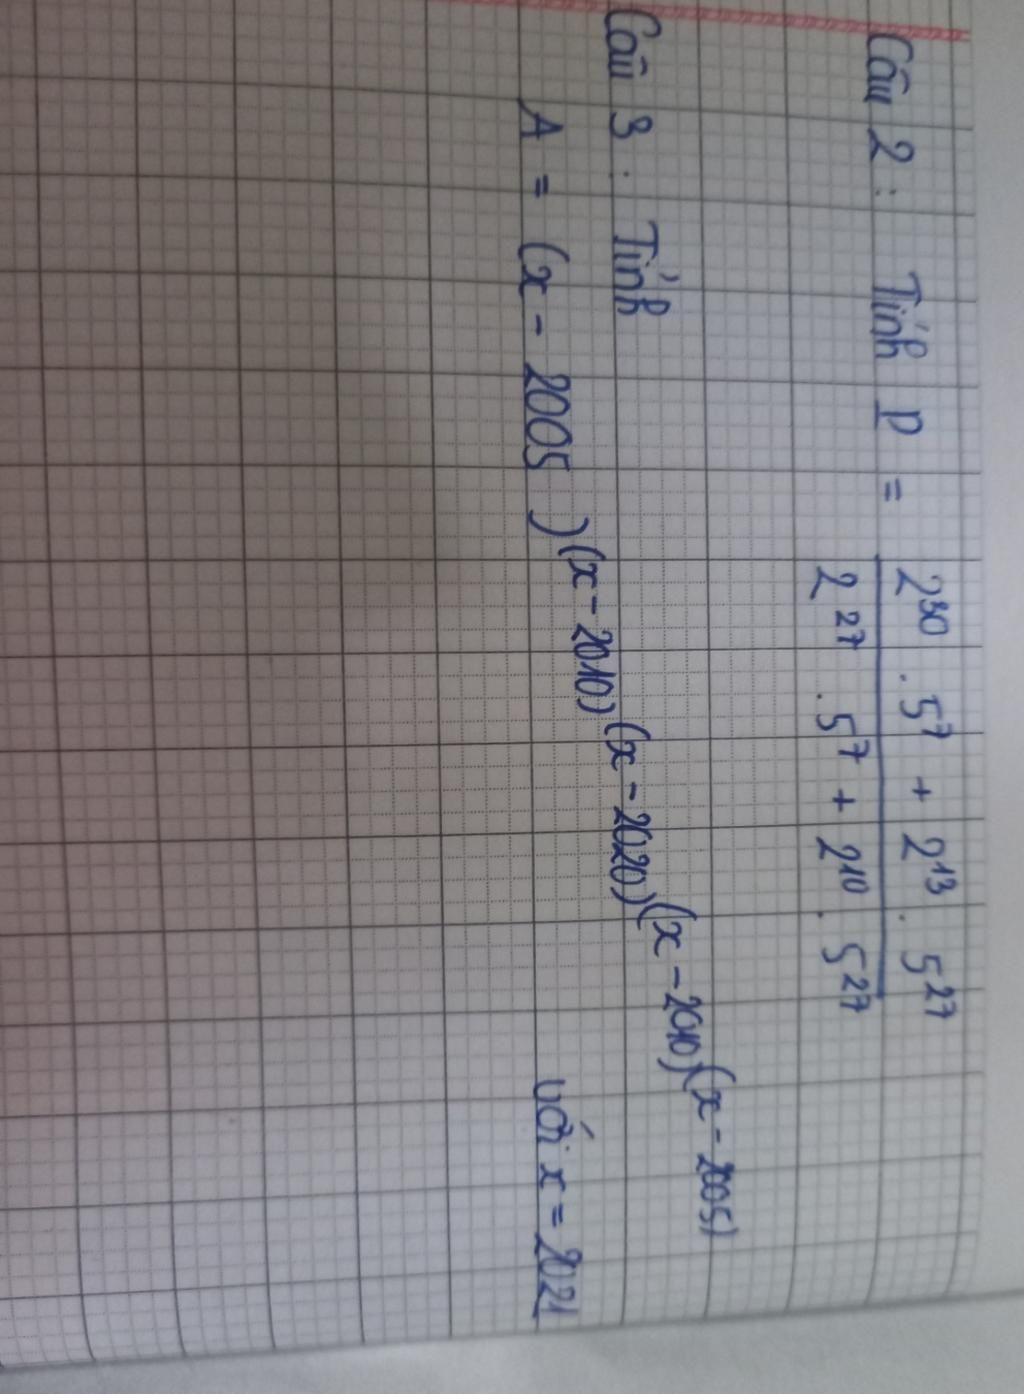 Câu 2 : Tính P = \frac{2^{30} . 5^7 + 2^{13} . 5^{27}}{2^{27} . 5^7 + 2^{10} . 5^{27}}
Câu 3 : Tính
A = (x - 2005)^{(x - 2010)^{(x - 2020)^{(x - 2010)^{(x - 2005)}}}} với x = 2021